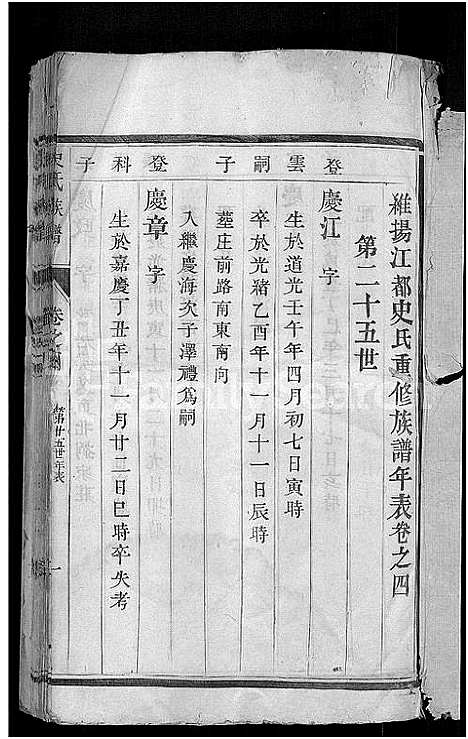 維揚江都史氏重修族譜年表卷之四
第二十五世
登雲嗣子
慶江 字
生於道光壬午年四月初七日寅時
卒於光緒乙酉年十一月十一日辰時
塟庄前路南東南向
入繼慶海次子澤禮爲嗣
登科子
慶章 字
生於嘉慶丁丑年十一月廿二日巳時卒失考
史氏族譜
卷之四
第廿五世年表
一